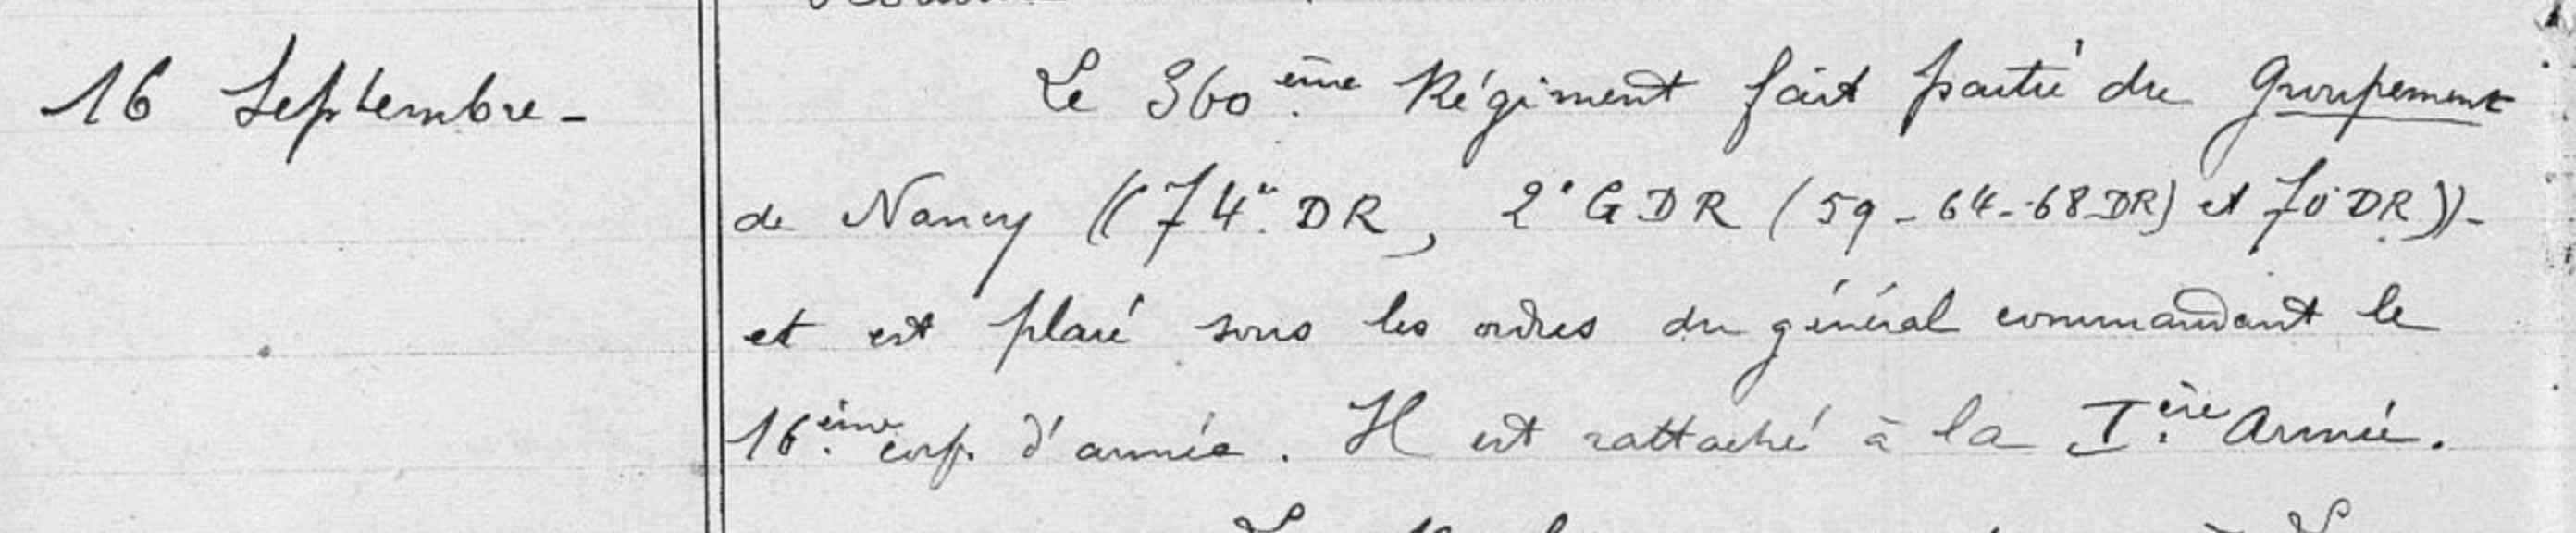 16 Septembre -
Le 360ème Régiment fait partie du Groupement
de Nancy ((74e DR, 2e GDR (59 - 64 - 68 DR) et 70e DR)) -
et est placé sous les ordres du général commandant le
16ème corps d'armée. Il est rattaché à la Ière Armée.